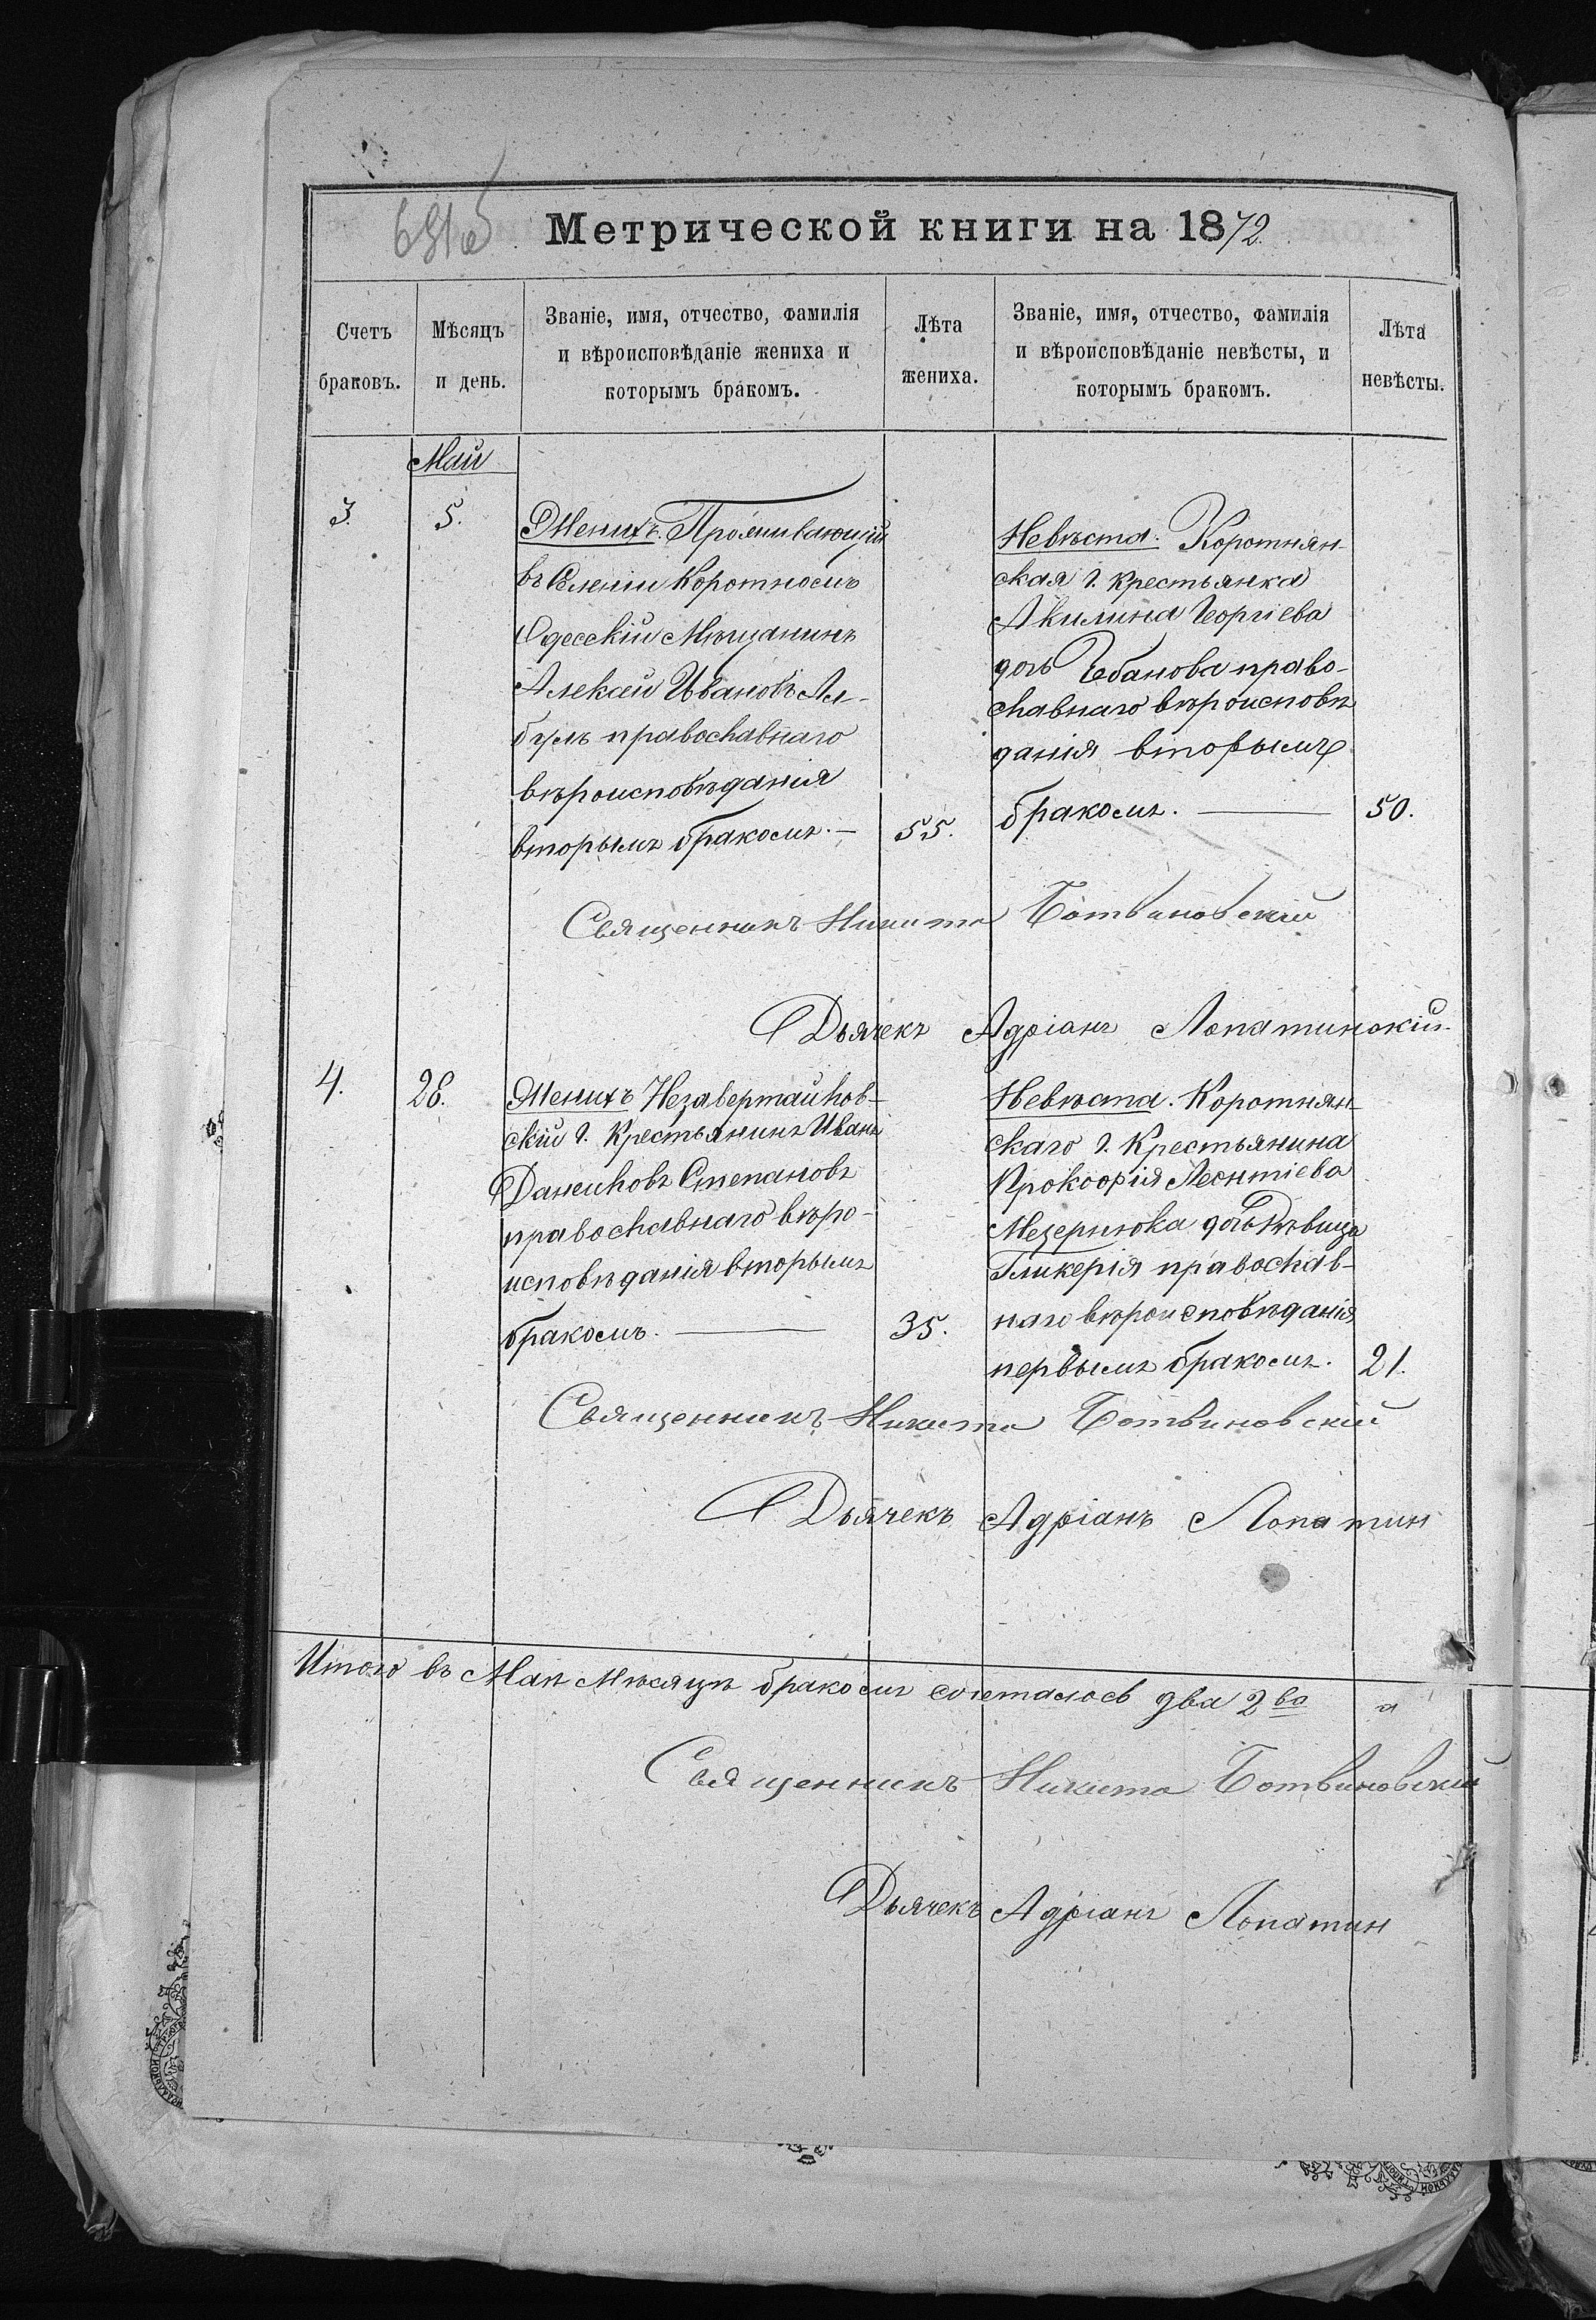 Метрической книги на 1872.
Счетъ браковъ.
Мѣсяцъ и день.
Званіе, имя, отчество, фамилія
и вѣроисповѣданіе жениха и
которымъ бракомъ.
Лѣта жениха.
Званіе, имя, отчество, фамилія
и вѣроисповѣданіе невѣсты, и
которымъ бракомъ.
Лѣта невѣсты.
Май
3. 5.
Женихъ. Проживающій
въ Селеніи Коротномъ
Одесскій Мѣщанинъ
Алексей Ивановъ Ал-
булъ православнаго
вѣроисповѣданія
вторымъ бракомъ. — 55.
Невѣста. Коротнян-
ская г. крестьянка
Акилина Георгіева
дочь Чебанова право-
славнаго вѣроисповѣ
данія вторымъ
бракомъ. — 50.
Священникъ Никита Ботвиновскій
Дьячекъ Адріанъ Лопатинскій
4. 28.
Женихъ Незавертайлов-
скій г. Крестьянинъ Иванъ
Даниловъ Степановъ
православнаго вѣро-
исповѣданія вторымъ
бракомъ. — 35.
Невѣста. Коротнян-
скаго г. Крестьянина
Прокофія Леонтіева
Мезернюка дочь Дѣвица
Гликерія православ-
наго вѣроисповѣданія
первымъ бракомъ. 21.
Священникъ Никита Ботвиновскій
Дьячекъ Адріанъ Лопатин
Итого въ Маѣ Мѣсяцѣ бракомъ сочеталось два 2 ва
Священникъ Никита Ботвиновскій
Дьячекъ Адріанъ Лопатин